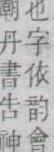 也字依韵會
朝丹書告神